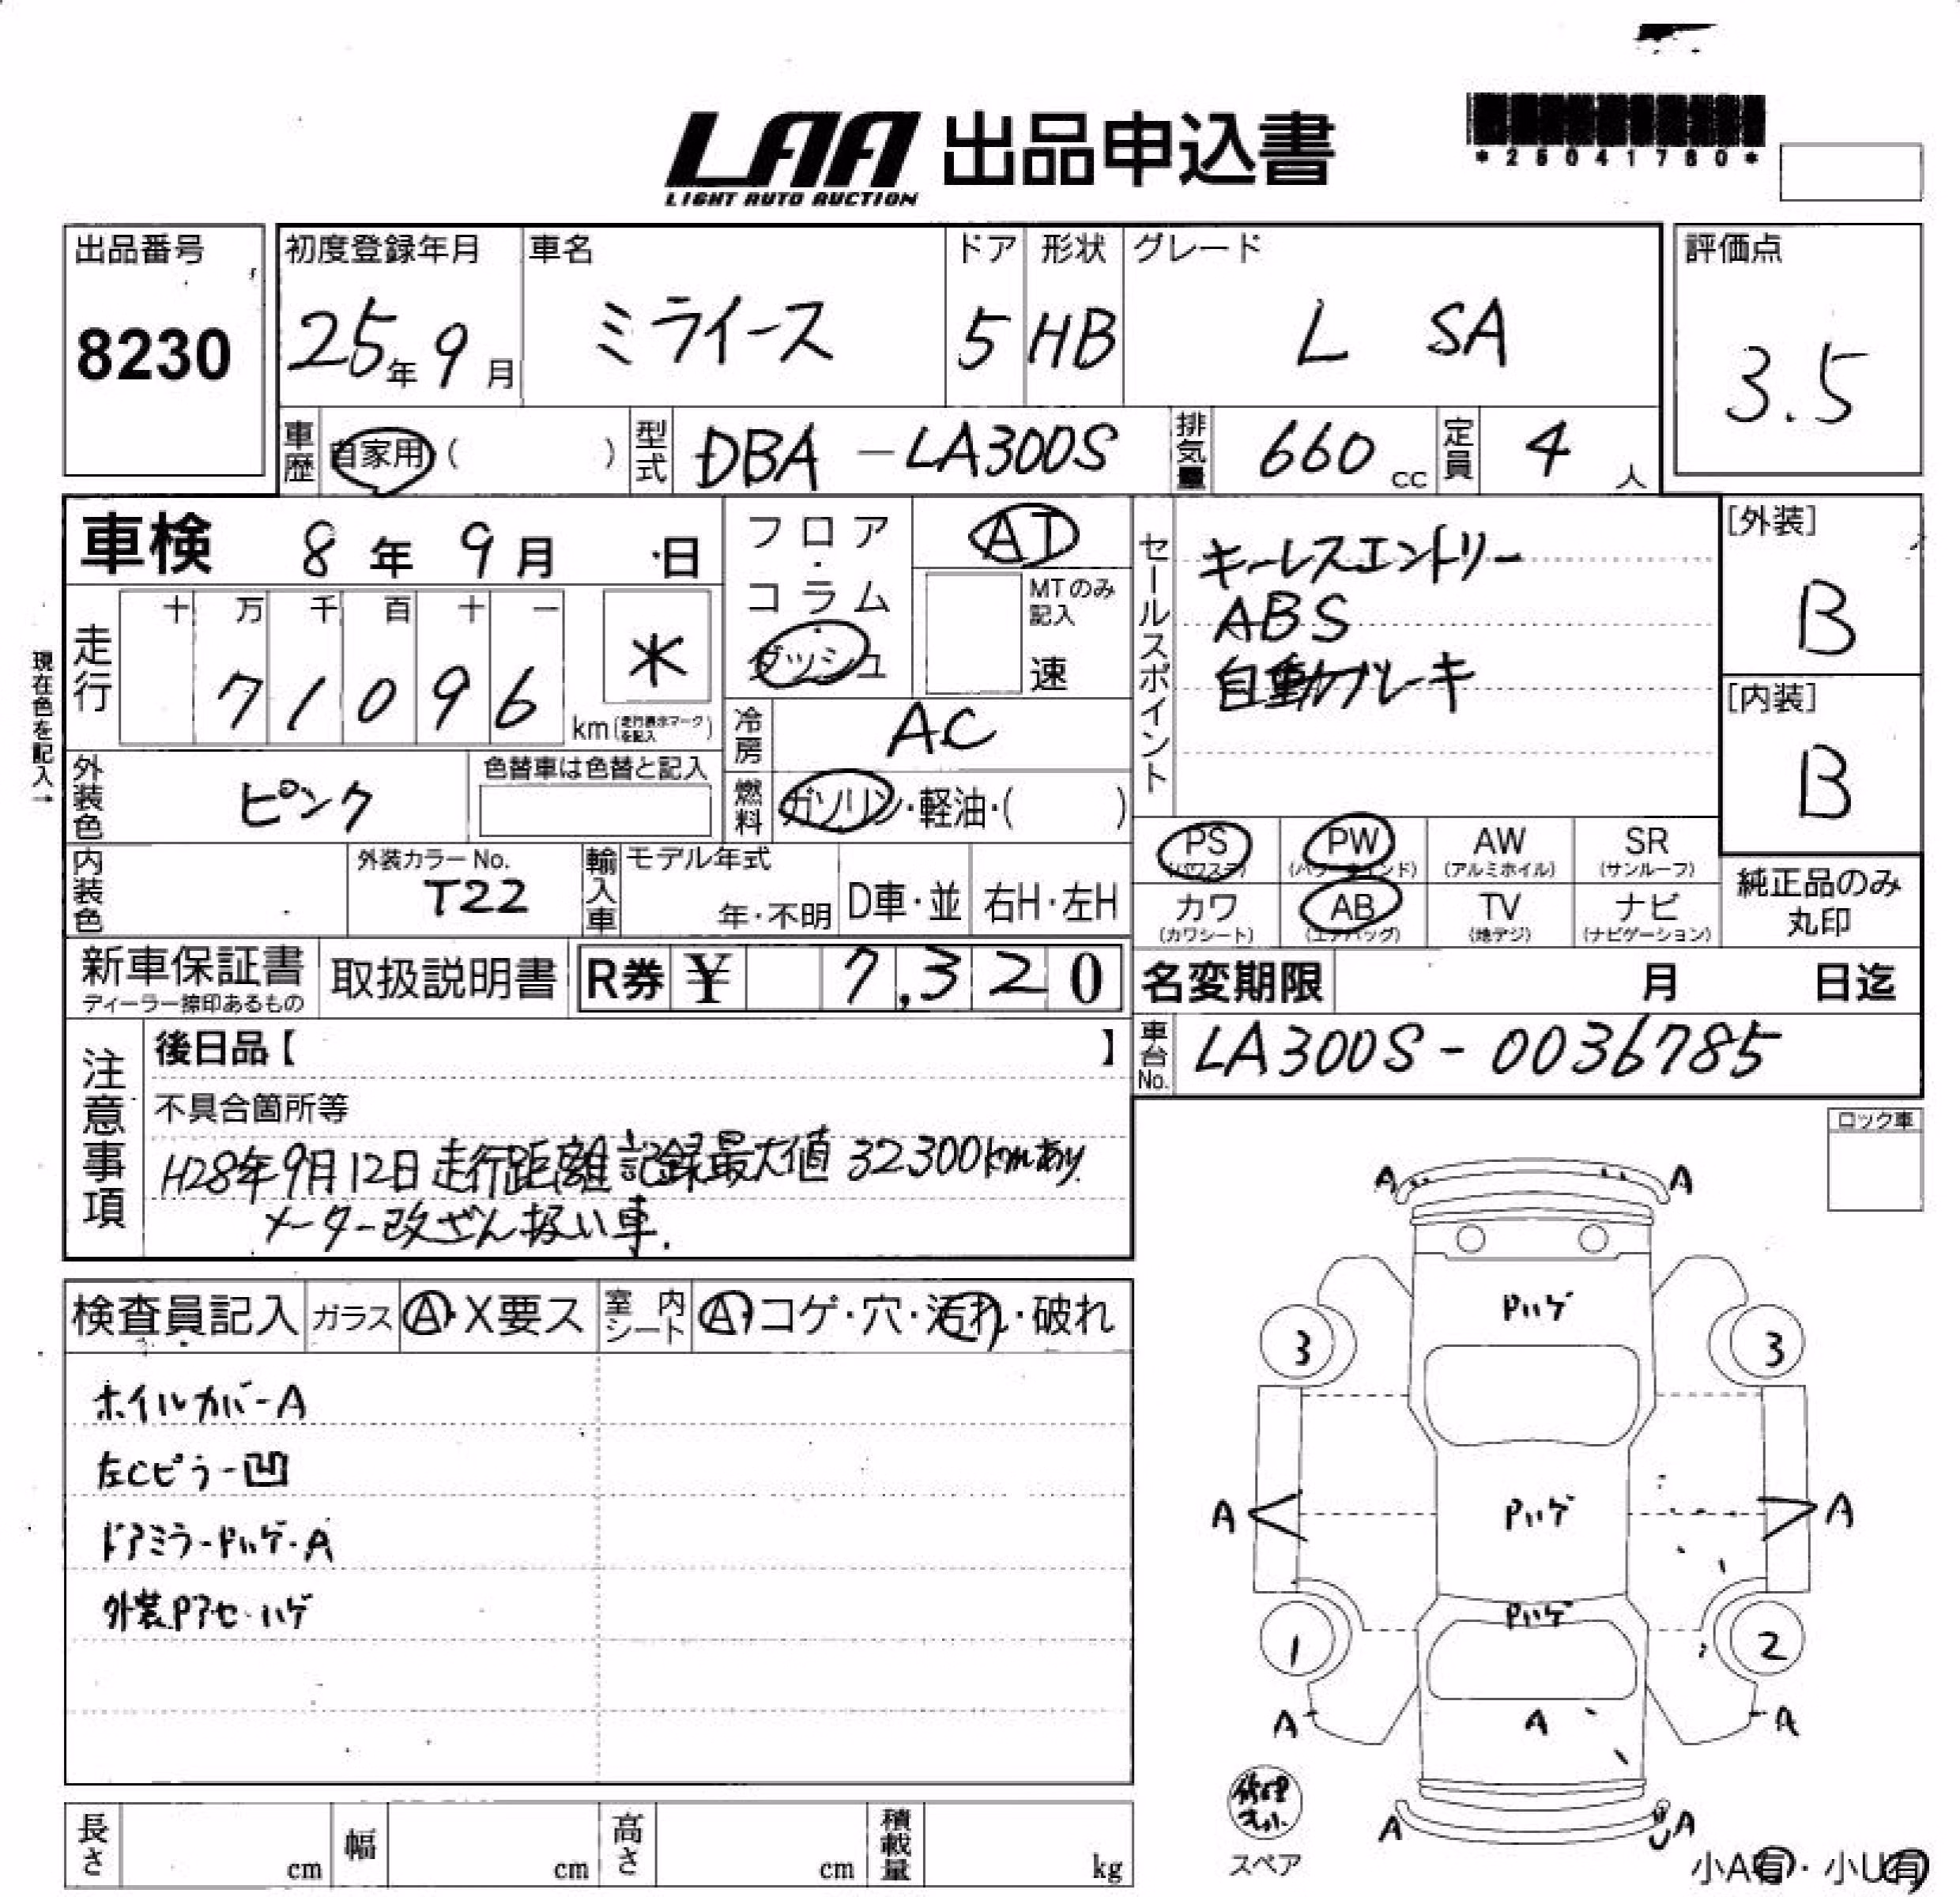 LAA 出品申込書
LIGHT AUTO AUCTION
*25041780*
出品番号
8230
初度登録年月
25年9月
車名
ミライース
ドア
5
形状
HB
グレード
L SA
評価点
3.5
車歴 自家用( )
型式 DBA-LA300S
排気量 660cc
定員 4人
車検 8年9月 日
フロア・コラム・ダッシュ
AT
MTのみ記入
速
現在色を記入→
走行
十 万 千 百 十 一
7 1 0 9 6 km
*
(走行表示マークを記入)
冷房 AC
燃料 ガソリン・軽油・( )
外装色 ピンク
色替車は色替と記入
内装色
外装カラーNo.
T22
輸入車
モデル年式
年・不明
D車・並
右H・左H
セールスポイント
キーレスエントリー
ABS
自動ブレーキ
[外装]
B
[内装]
B
PS (パワステ)
PW (パワーウインド)
AW (アルミホイル)
SR (サンルーフ)
カワ (カワシート)
AB (エアバッグ)
TV (地デジ)
ナビ (ナビゲーション)
純正品のみ丸印
新車保証書
ディーラー捺印あるもの
取扱説明書
R券 ¥ 7,320
名変期限 月 日迄
車台No. LA300S-0036785
注意事項
後日品【 】
不具合箇所等
H28年9月12日走行距離記録最大値 32,300kmあり
メーター改ざん扱い車.
ロック車
検査員記入
ガラス A・X要ス
室内シート A・コゲ・穴・汚れ・破れ
ホイルカバーA
左Cピラー凹
ドアミラーPハゲ・A
外装Pアセ・ハゲ
A A
Pハゲ
3 3
A Pハゲ A
Pハゲ
1 2
A A A
A A
修理キット
スペア
小A有・小U有
長さ cm
幅 cm
高さ cm
積載量 kg